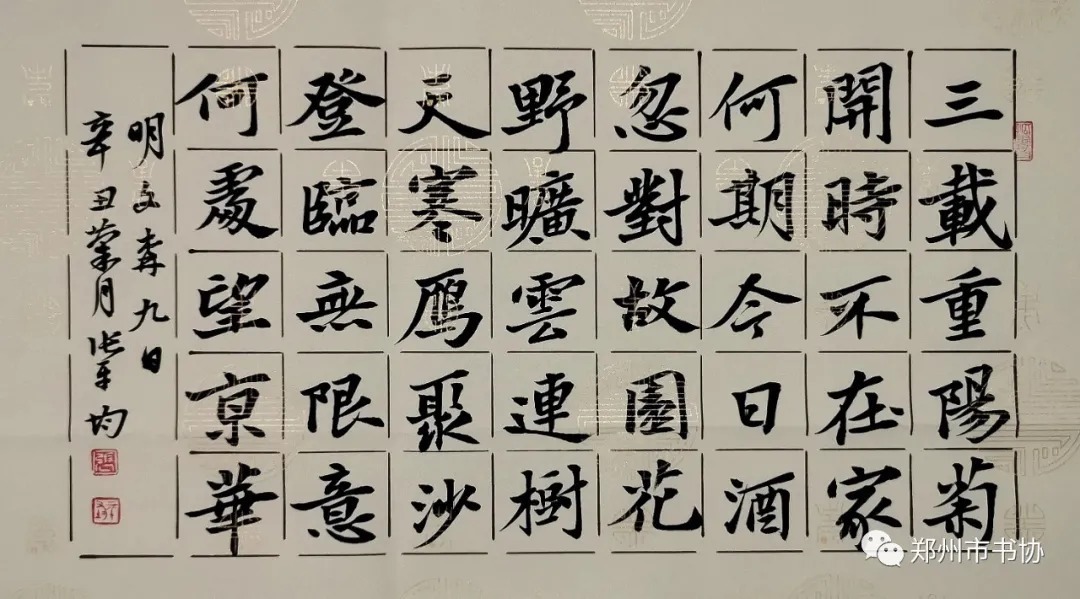 三載重陽菊
開時不在家
何期今日酒
忽對故園花
野曠雲連樹
天寒鴈聚沙
登臨無限意
何處望京華
明文森九日
辛丑菊月张军均
郑州市书协